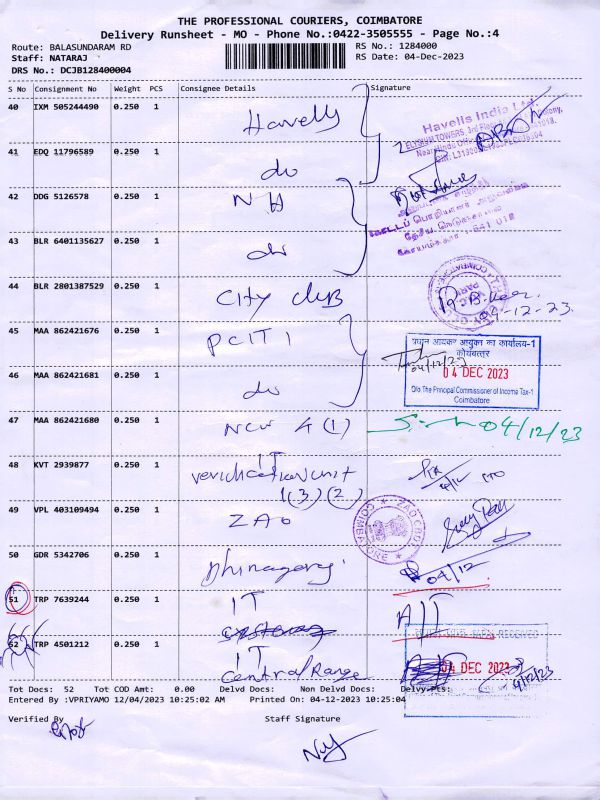 THE PROFESSIONAL COURIERS, COIMBATORE
Delivery Runsheet - MO - Phone No.:0422-3505555 - Page No.:4
Route: BALASUNDARAM RD
RS No.: 1284000
Staff: NATARAJ
RS Date: 04-Dec-2023
DRS No.: DCJB128400004
S No Consignment No Weight PCS Consignee Details Signature
40 IXM 505244490 0.250 1 Havells
Havells India Ltd.
41 EDQ 11796589 0.250 1 do
42 DDG 5126578 0.250 1 NH
43 BLR 6401135627 0.250 1 do
44 BLR 2801387529 0.250 1 City club
04-12-23
45 MAA 862421676 0.250 1 PCIT 1
प्रधान आयकर आयुक्त का कार्यालय-1
कोयंबत्तूर
04/12/23
04 DEC 2023
O/o The Principal Commissioner of Income Tax-1
Coimbatore
46 MAA 862421681 0.250 1 do
47 MAA 862421680 0.250 1 NCW 4 (1) 04/12/23
48 KVT 2939877 0.250 1 IT
verification unit
1(3)(2)
4/12
49 VPL 403109494 0.250 1 ZAO
50 GDR 5342706 0.250 1
04/12
51 TRP 7639244 0.250 1 IT
52 TRP 4501212 0.250 1 IT
Central Range
04 DEC 2023
4/12/23
Tot Docs: 52 Tot COD Amt: 0.00 Delvd Docs: Non Delvd Docs: Delvy-Pts:
Entered By :VPRIYAMO 12/04/2023 10:25:02 AM Printed On: 04-12-2023 10:25:04
Verified By Staff Signature